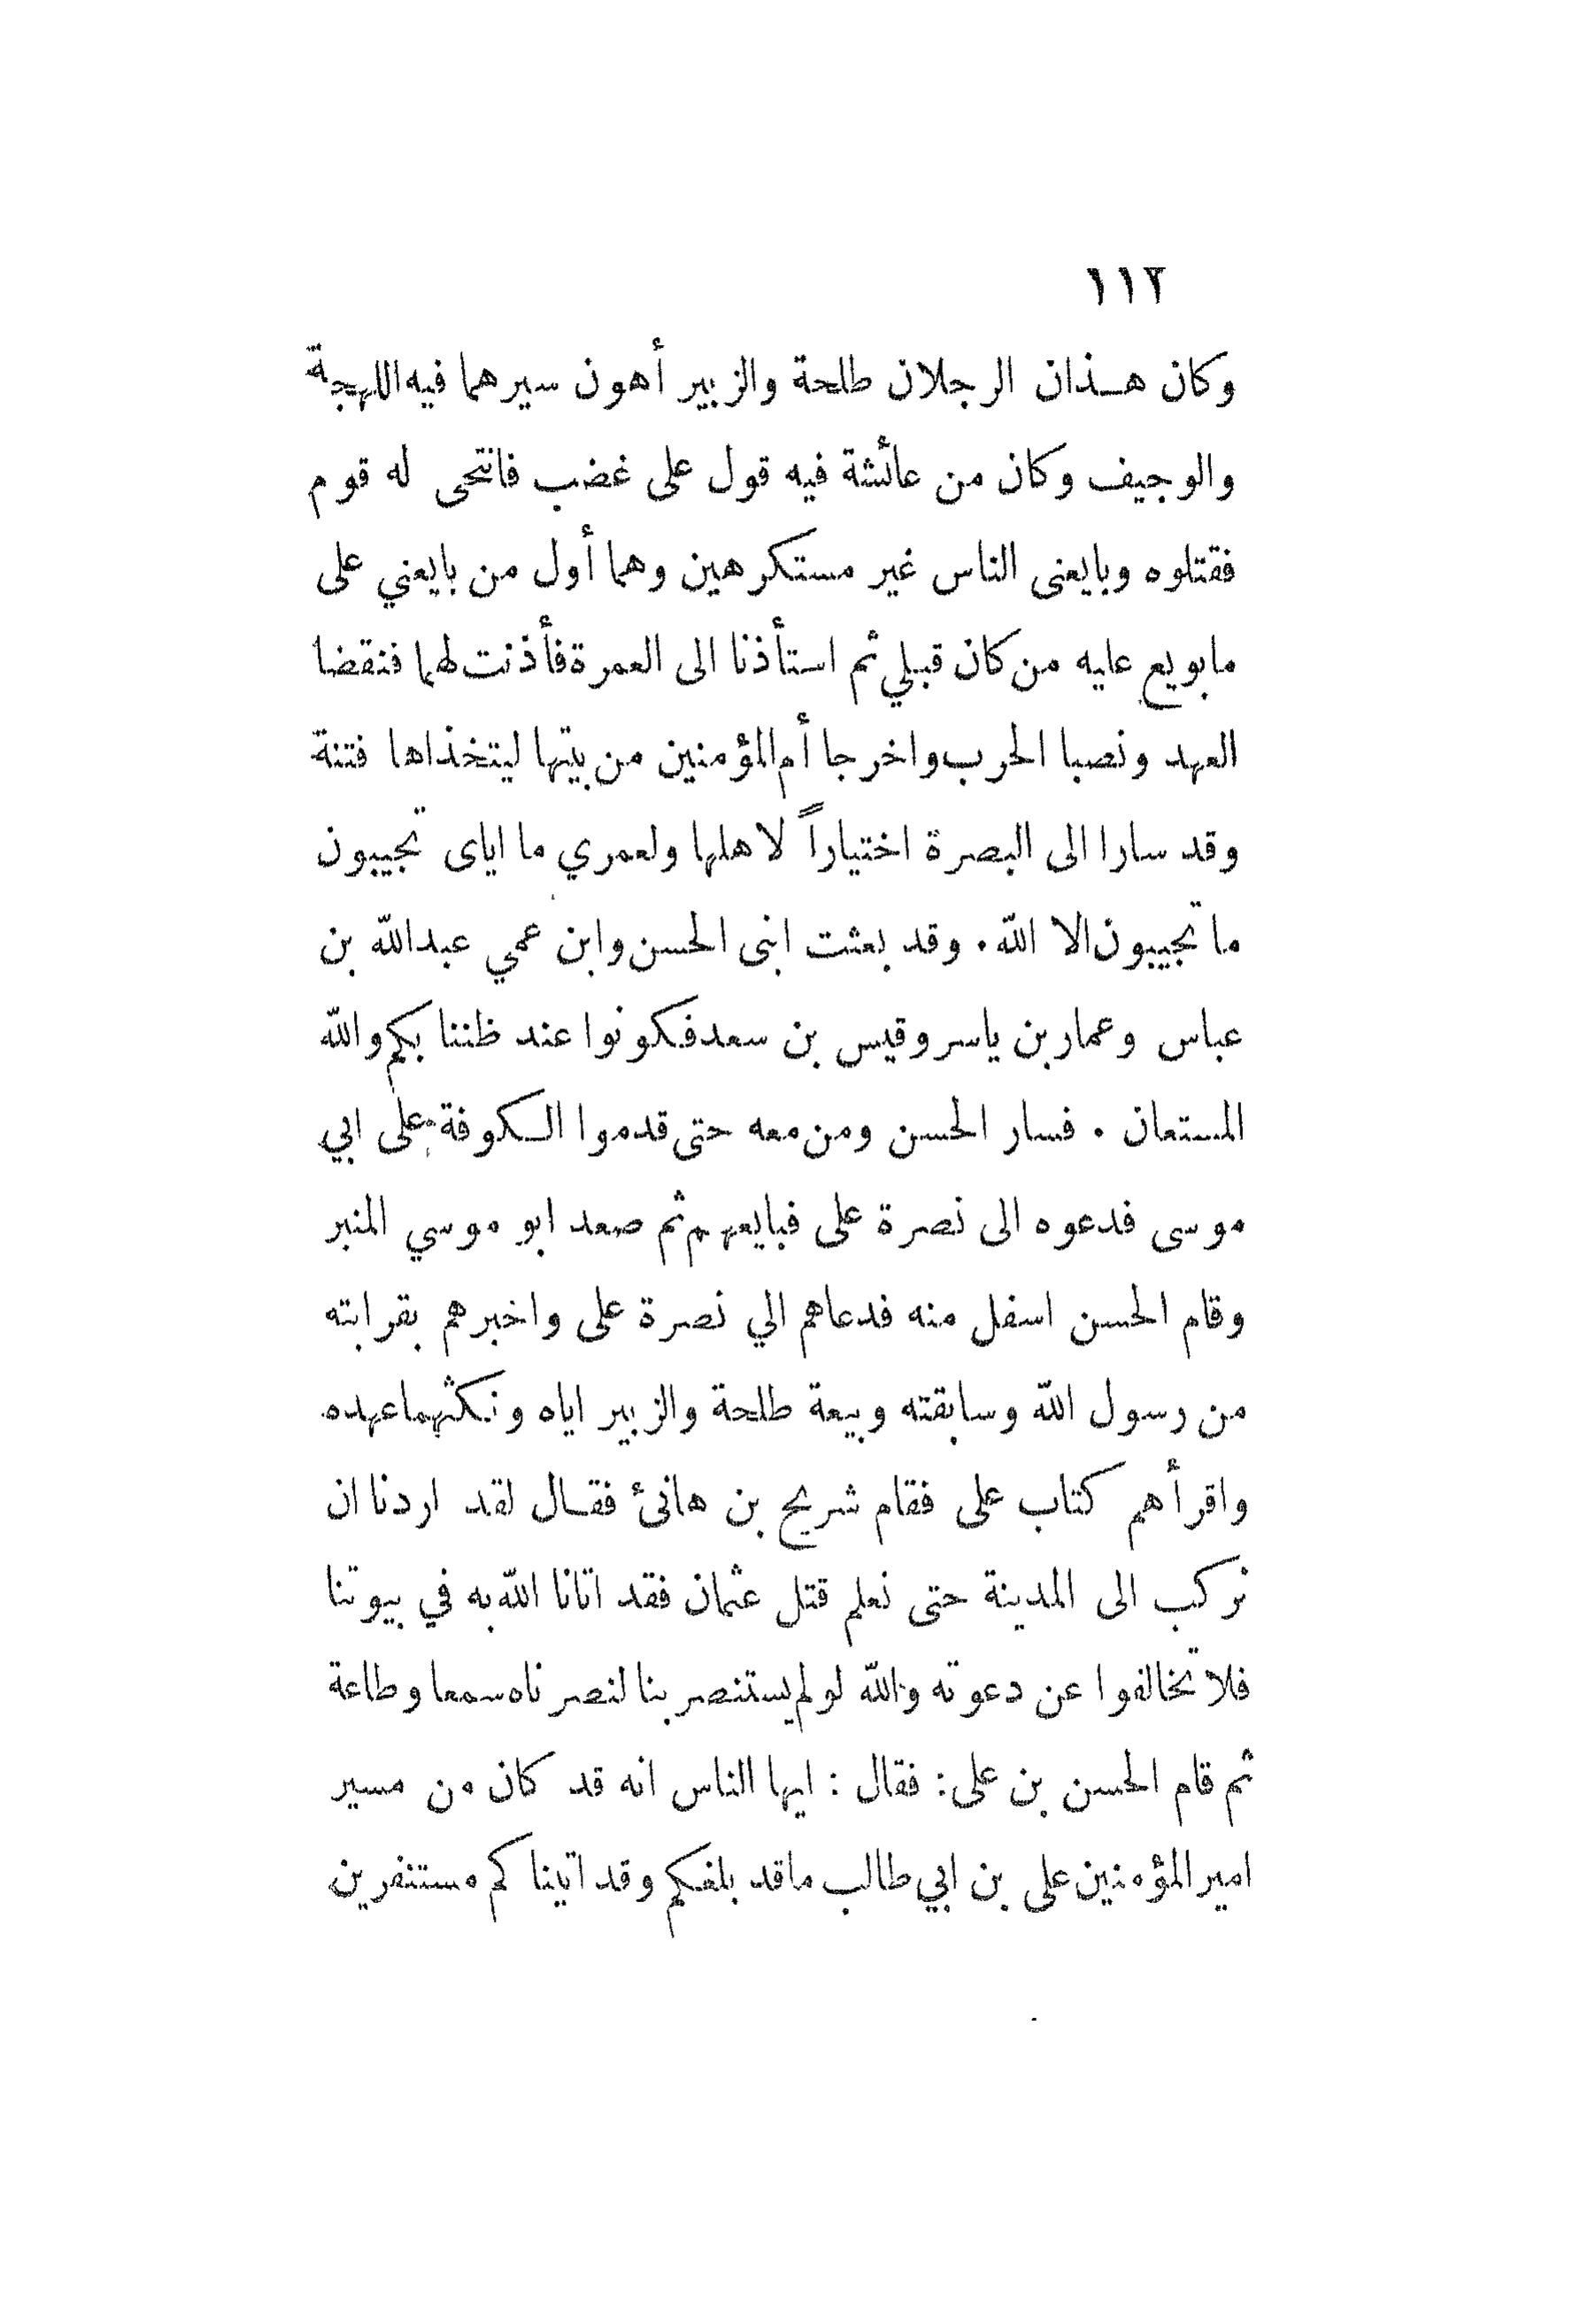 ١١٢
وكان هذان الرجلان طلحة والزبير أهون سيرهما فيه اللهجة
والوجيف وكان من عائشة فيه قول على غضب فانتحى له قوم
فقتلوه وبايعنى الناس غير مستكرهين وهما أول من بايعني على
مابويع عليه من كان قبلي ثم استأذنا الى العمرة فأذنت لهما فنقضا
العهد ونصبا الحرب واخرجا أم المؤمنين من بيتها ليتخذاها فتنة
وقد سارا الى البصرة اختياراً لاهلها ولعمري ما اياى تجيبون
ما تجيبون الا الله. وقد بعثت ابنى الحسن وابن عمي عبدالله بن
عباس وعمار بن ياسر وقيس بن سعد فكونوا عند ظننا بكم والله
المستعان . فسار الحسن ومن معه حتى قدموا الكوفة على ابي
موسى فدعوه الى نصرة على فبايعهم ثم صعد ابو موسي المنبر
وقام الحسن اسفل منه فدعاهم الي نصرة على واخبرهم بقرابته
من رسول الله وسابقته وبيعة طلحة والزبير اياه ونكثهما عهده
واقرأهم كتاب على فقام شريح بن هانئ فقال لقد اردنا ان
نركب الى المدينة حتى نعلم قتل عثمان فقد اتانا الله به في بيوتنا
فلا تخالفوا عن دعوته والله لو لم يستنصر بنا لنصرناه سمعا وطاعة
ثم قام الحسن بن على: فقال : ايها الناس انه قد كان من مسير
امير المؤمنين على بن ابي طالب ماقد بلغكم وقد اتيناكم مستنفرين